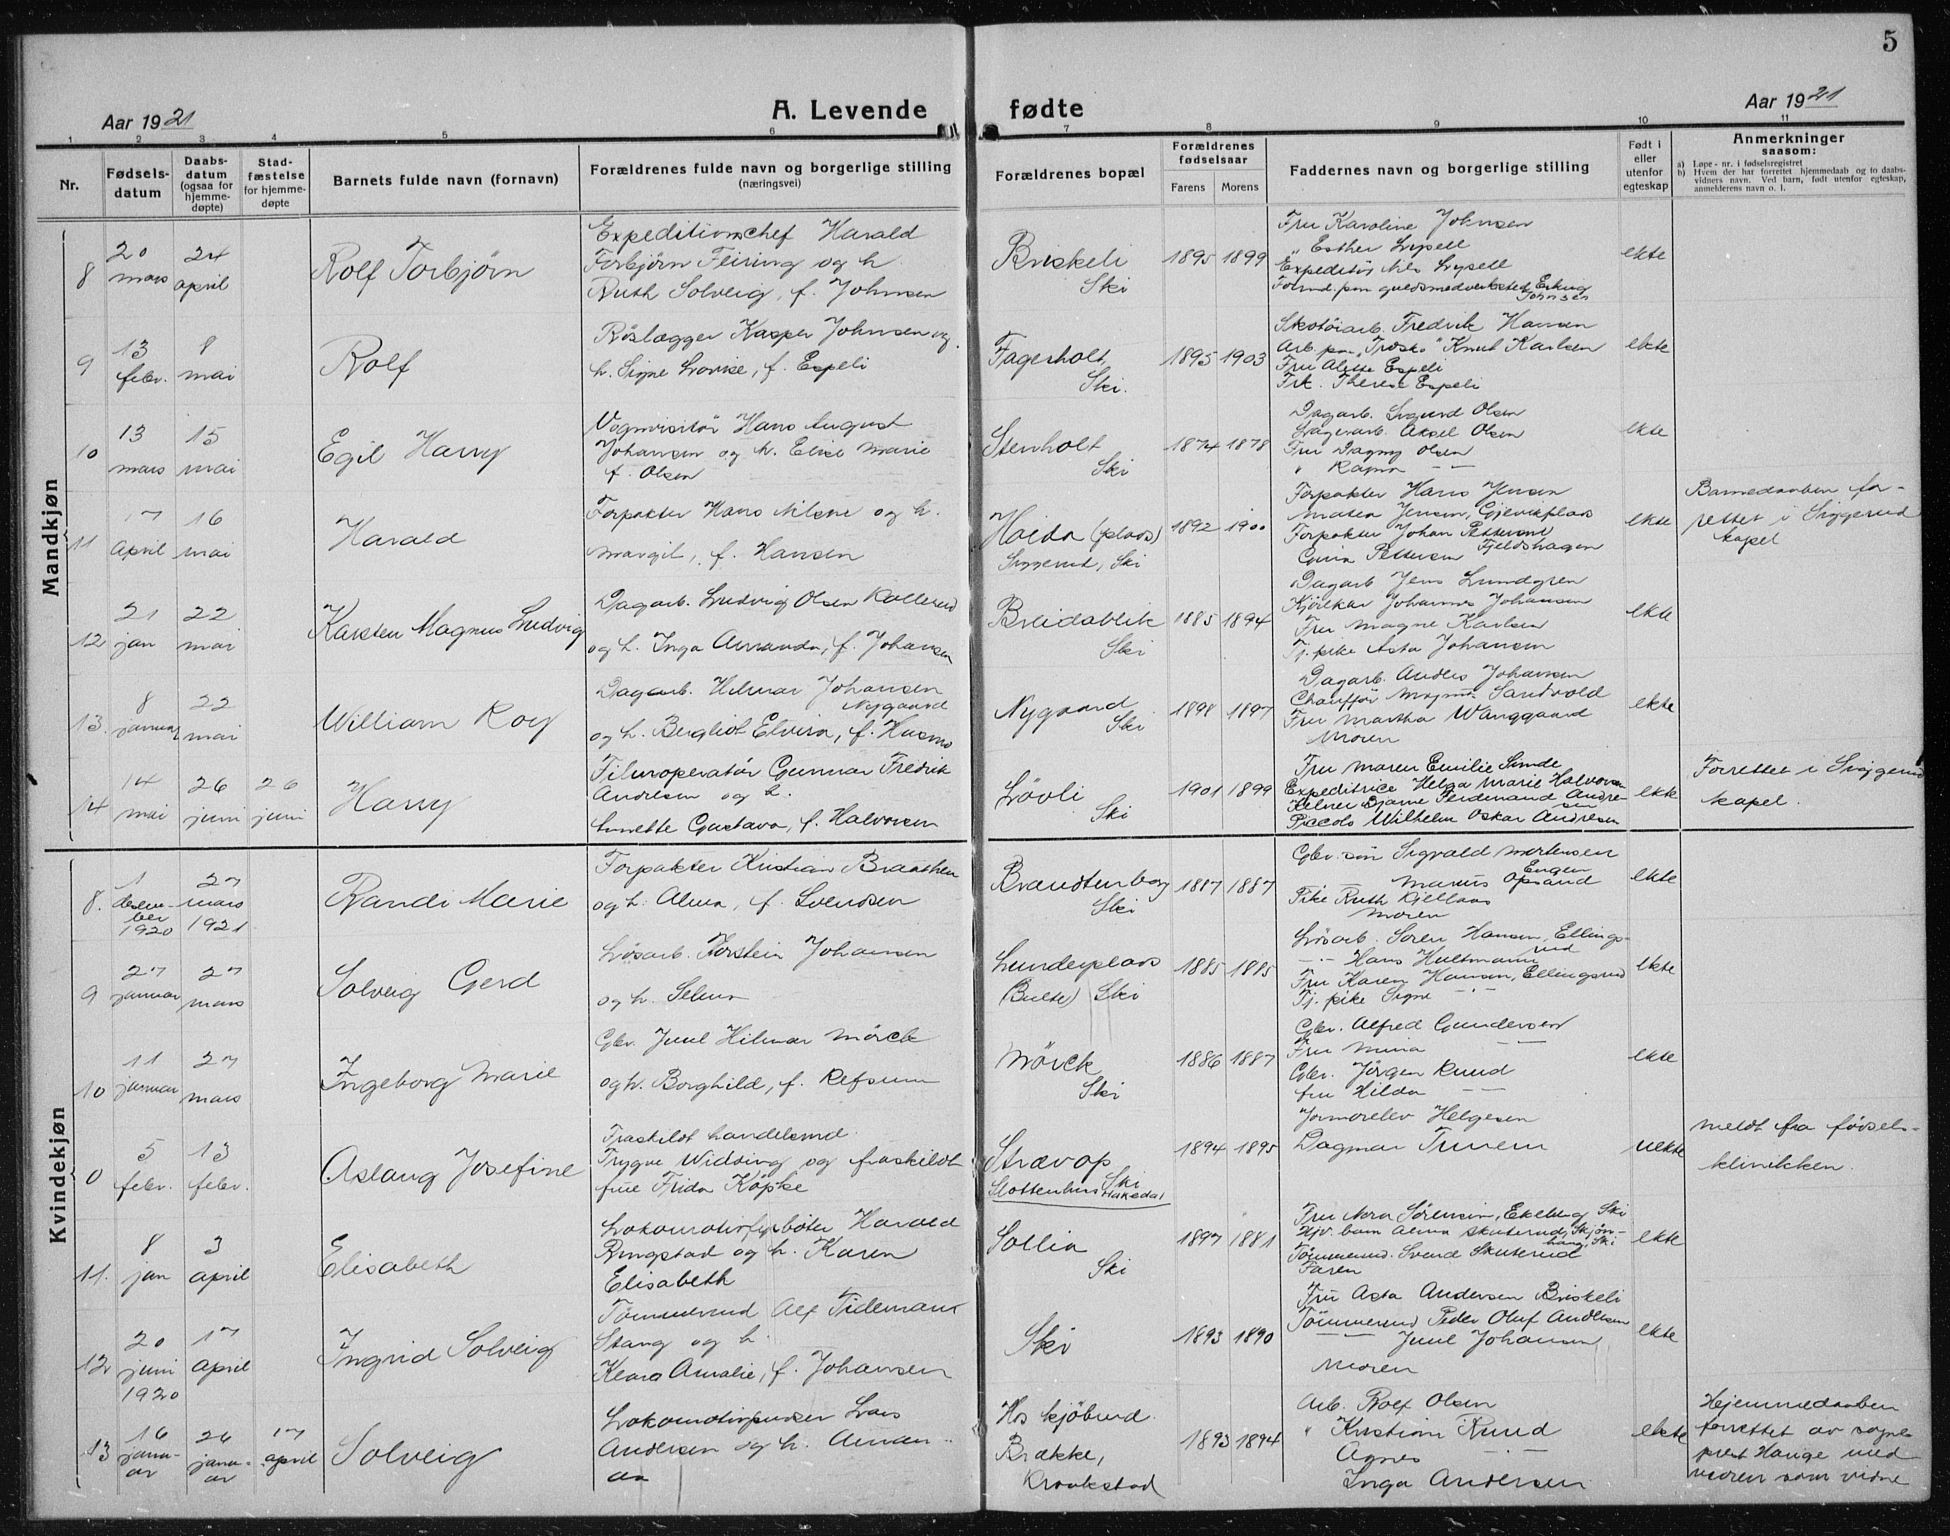 5
Aar 1921
A. Levende fødte
Aar 1921
1 2 3 4 5 6 7 8 9 10 11
Nr. Fødsels-datum Daabs-datum (ogsaa for hjemme-døpte) Stad-fæstelse for hjemme-døpte Barnets fulde navn (fornavn) Forældrenes fulde navn og borgerlige stilling (næringsvei) Forældrenes bopæl Forældrenes fødselsaar Farens Morens Faddernes navn og borgerlige stilling Født i eller utenfor egteskap Anmerkninger saasom:
a) Løpe-nr. i fødselsregistret
b) Hvem der har forrettet hjemmedaab og to daabs-vidners navn. Ved barn, født utenfor egteskap, anmelderens navn o. l.
Mandkjøn
8 20 mars 24 april Rolf Torbjørn
Expeditionschef Harald
Torbjørn Fleiring og h.
Ruth Solveig, f. Johnsen
Briskeli
Ski
1895 1899
Fru Karoline Johnsen
" Esther Lysell
Expeditör Nils Lysell
Formd. paa guldsmedverksted Erling
Johnsen
ekte
9 13 febr. 8 mai Rolf
Rörlægger Kasper Johnsen og
h. Signe Lovise, f. Espeli
Fagerholt,
Ski.
1895 1903
Skotöiarb. Fredrik Hansen
Arb. paa "Træsko" Knut Karlsen
Fru Alette Espeli
Frk. Therese Espeli
ekte
10 13 mars 15 mai Egil Harry
Vognvisitör Hans August
Johansen og h. Elise Marie
f. Olsen
Stenholt
Ski
1874 1878
Dagarb. Sigurd Olsen
Lagerarb. Aksel Olsen
Fru Dagny Olsen
" Ragna — —
ekte
11 17 April 16 mai Harald
Forpakter Hans Nilsen og h.
Margit, f. Hansen
Haida (plads)
Siggerud, Ski
1892 1900
Forpakter Hans Jensen
Matea Jensen, Gjevikplads
Forpakter Johan Pettersen
Gina Pettersen Fjeldshagen
ekte
Barnedaaben for-
rettet i Siggerud
kapel
12 21 jan 22 mai Karsten Magnus Ludvig
Dagarb. Ludvig Olsen Kollerud
og h. Inga Amanda, f. Johansen
Breidablik
Ski
1885 1894
Dagarb Jens Lundgren
Kjörekar Johannes Johansen
Fru Magne Karlsen
Tj. pike Asta Johansen
ekte
13. 8 januar 22 mai William Roy
Dagarb. Hilmar Johansen
Nygaard
og h. Bergliot Elvira, f. Husmo
Nygaard
Ski
1898 1897
Dagarb. Anders Johansen
Chauffør Magnus Sandvold
Fru Martha Wanggaard
Moren
ekte
14 14 mai 26 juni 26 juni Harry
Filmoperatör Gunnar Fredrik
Andresen og h.
Annette Gustava, f. Halvorsen
Lövli
Ski
1901 1899
Fru Maren Emilie Sunde
Expeditrice Helga Marie Halvorsen
Kelner Bjarne Ferdinand Andre-
sen
Piccolo Wilhelm Oskar Andresen
ekte
Forrettet i Siggerud
kapel.
Kvindekjøn
8. 1 desem-ber 1920 27 mars 1921 Randi Marie
Forpakter Kristian Braathen
og h. Alma, f. Svendsen
Brandtenborg
Ski
1887 1887
Gbr. sön Sigvald Mortensen
Engen
— Marius Opsand
Pike Ruth Kjellaas
Moren
ekte
9 27 januar 27 mars Solveig Gerd
Lösarb. Torstein Johansen
og h. Selma
Lunderplads
(Bulte) Ski
1885 1885
Lösarb. Soren Hansen, Ellings-
rud
— " — Hans Hultmann
Fru Karen Hansen, Ellingsrud
Tj. pike Signe — " —
ekte
10 11 januar 27 mars Ingeborg Marie
Gbr. Juul Hilmar Mörck
og h. Borghild, f. Refsum
Mörck
Ski
1886 1887
Gbr. Alfred Gundersen
Fru Mina — —
Gbr. Jörgen Ruud
fru Hilda — —
ekte
0 5 febr. 13 febr. Aslaug Josefine
Fraskildt handelsmd.
Trygve Widding og fraskildt
frue Frida Köpke
Strævop
Ski
Slottenhus Hakedal
1894 1895
Jormorelev Helgesen
Dagmar Tunem
uekte
Meldt fra födsels-
klinikken.
11. 8 jan 3 april Elisabeth
Lokomotivfyrböter Harald
Ringstad og h. Karen
Elisabeth
Sollia
Ski
1897 1881
Fru Nora Sörensen, Ekeberg Ski
Hjv. barn Alma Skuterud, Skjön-
haug, Ski
Tömmermd. Svend Skuterud
Faren
ekte
12 20 juni 1920 17 april Ingrid Solveig
Tömmermd Alf Tidemann
Stang og h.
Klara Amalie, f. Johansen
Ski
1893 1890
Fru Asta Andersen Briskeli
Tömmermd Peder Oluf Andersen
— — Juul Johansen
Moren
ekte
13 16 janu-ar 26 janu-ar 17 april Solveig
Lokomotivpudser Lars
Andersen og h. Aman-
da
Hos kjöbmd.
Brække,
Kraakstad
1893 1894
Arb. Rolf Olsen
" Kristian Ruud
Agnes — " —
Inga Andersen
ekte
Hjemmedaaben
forrettet av sogne-
prest Hauge med
moren som vidne